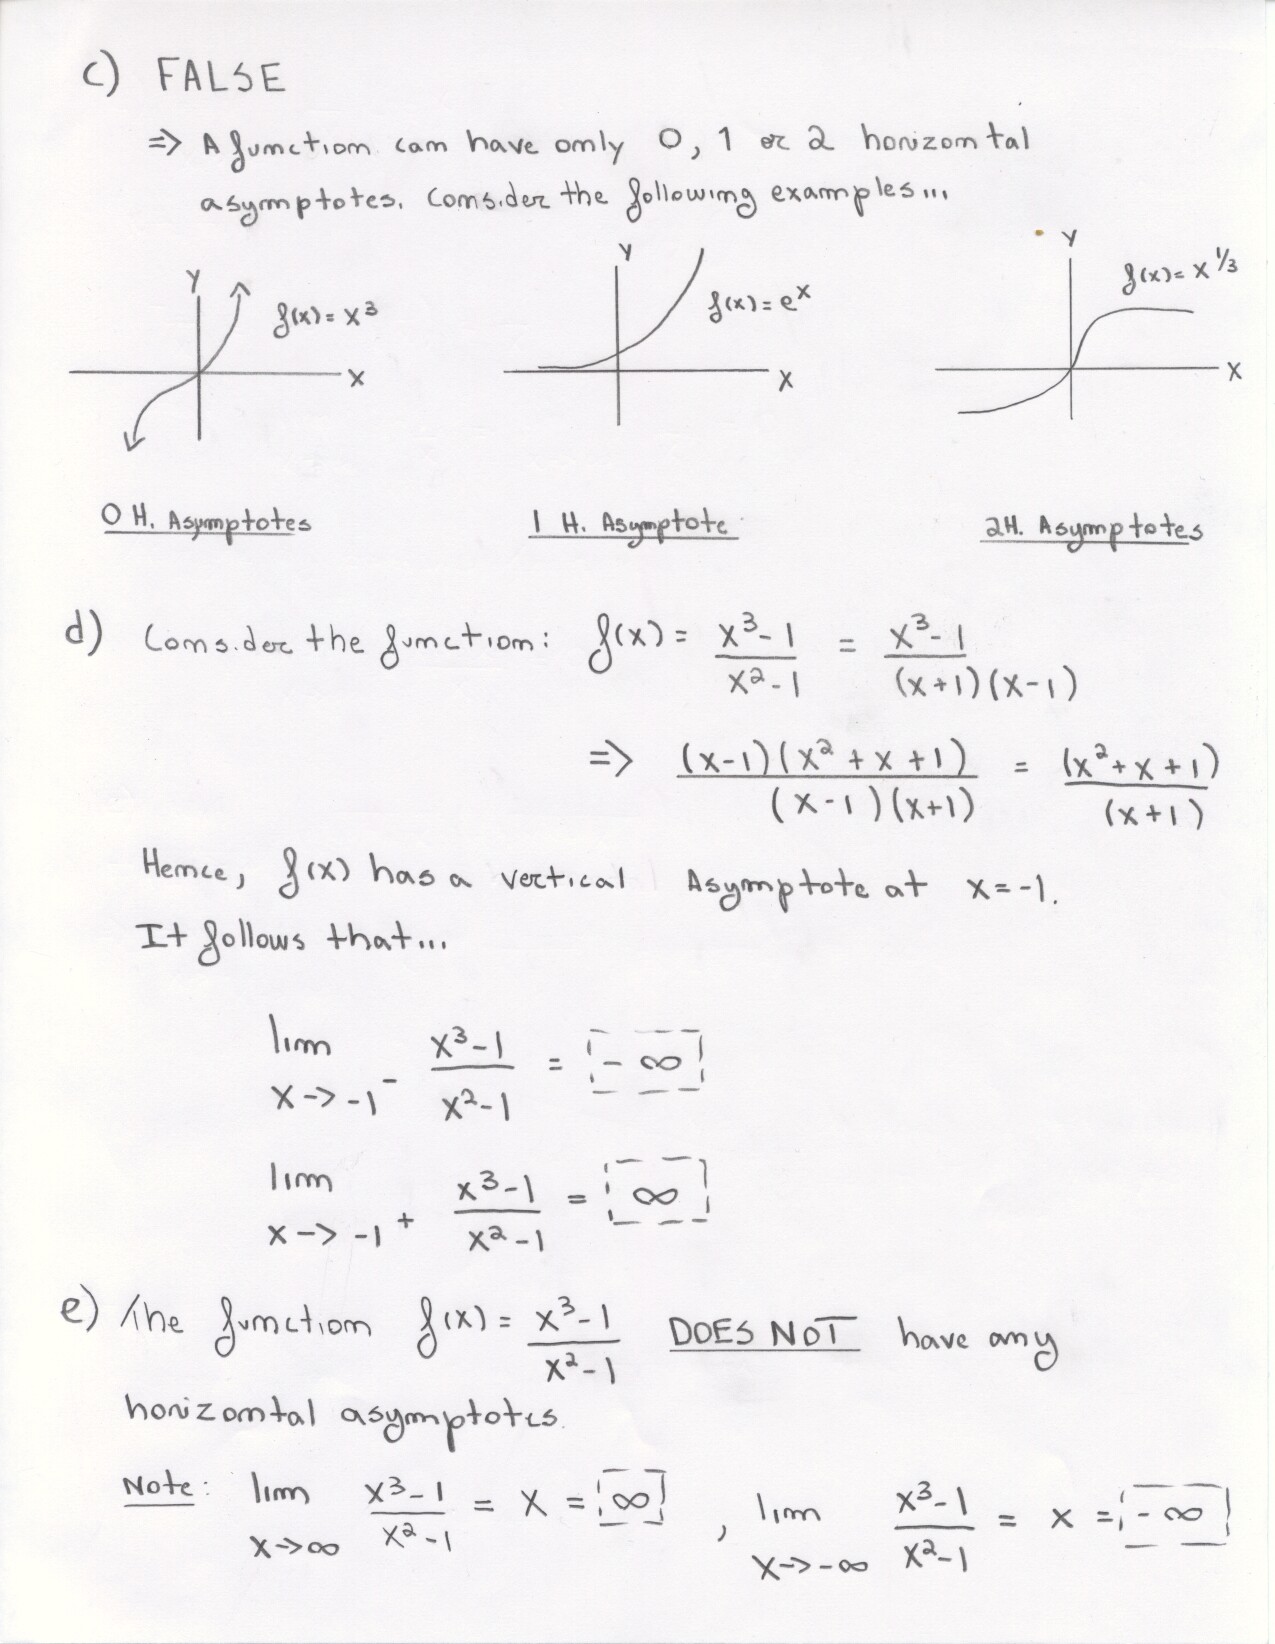 c) FALSE
=> A function can have only 0, 1 or 2 horizontal
asymptotes. Consider the following examples...
Y f(x) = x³ X
Y f(x) = eˣ X
Y f(x) = x^1/3 X
0 H. Asymptotes 1 H. Asymptote 2H. Asymptotes
d) Consider the function: f(x) = (x³-1)/(x²-1) = (x³-1)/((x+1)(x-1))
=> ((x-1)(x²+x+1))/((x-1)(x+1)) = (x²+x+1)/(x+1)
Hence, f(x) has a vertical Asymptote at x=-1.
It follows that...
lim x->-1⁻ (x³-1)/(x²-1) = -∞
lim x->-1⁺ (x³-1)/(x²-1) = ∞
e) The function f(x) = (x³-1)/(x²-1) DOES NOT have any
horizontal asymptotes.
Note: lim x->∞ (x³-1)/(x²-1) = x = ∞ , lim x->-∞ (x³-1)/(x²-1) = x = -∞